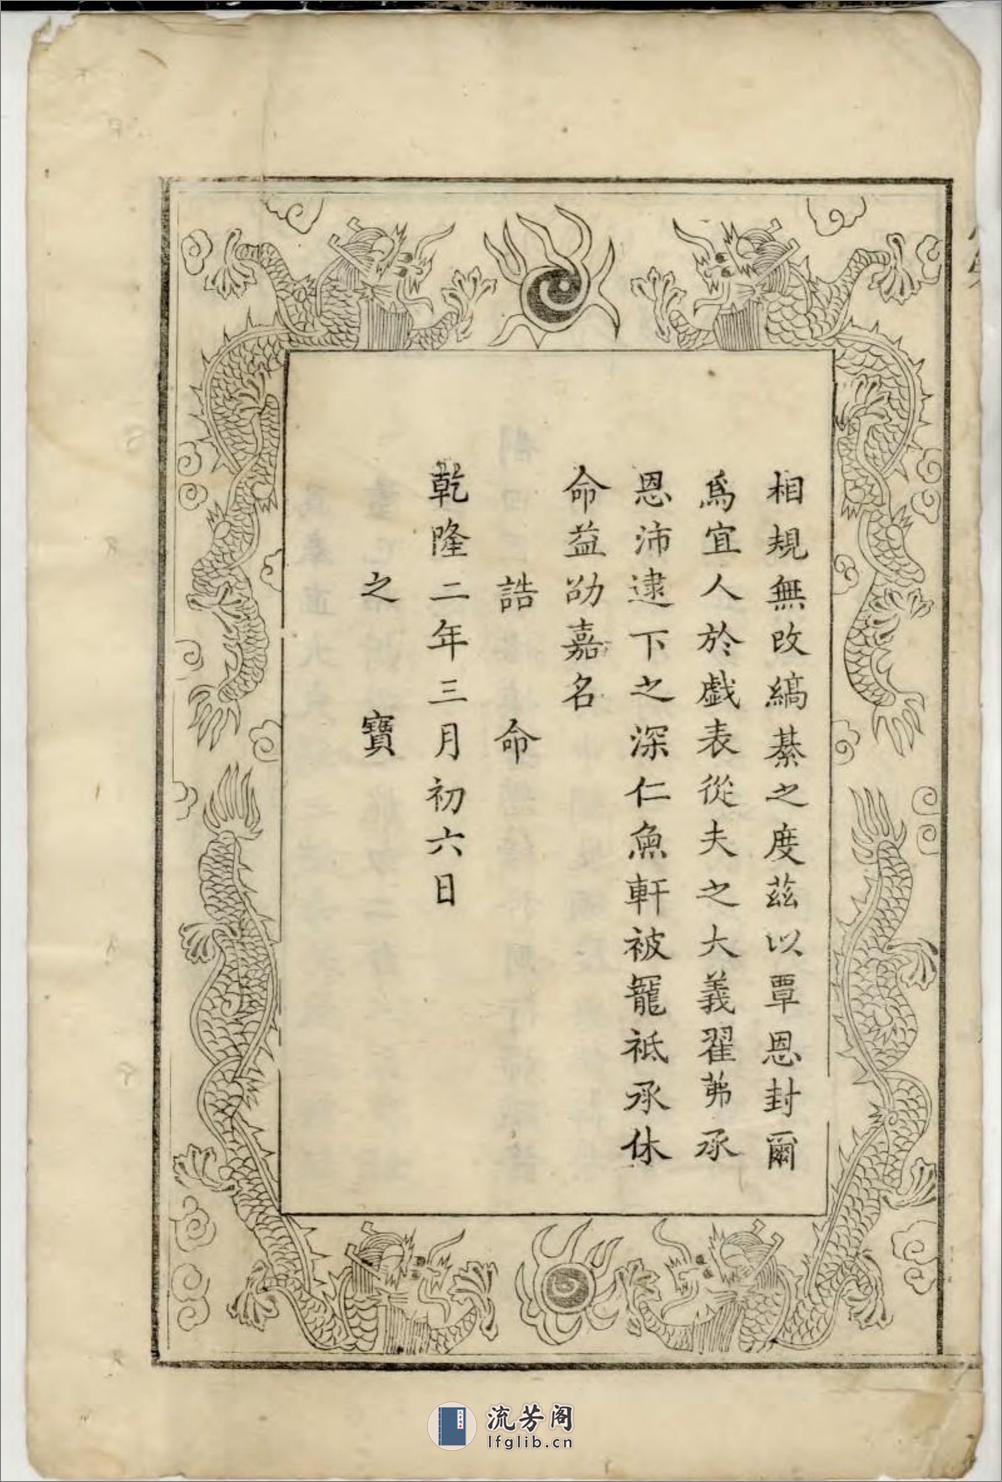 相規無改縞綦之度茲以覃恩封爾
爲宜人於戲表從夫之大義翟茀承
恩沛逮下之深仁魚軒被寵祗承休
命益劭嘉名
誥命
乾隆二年三月初六日
之寶
流芳阁
lfglib.cn